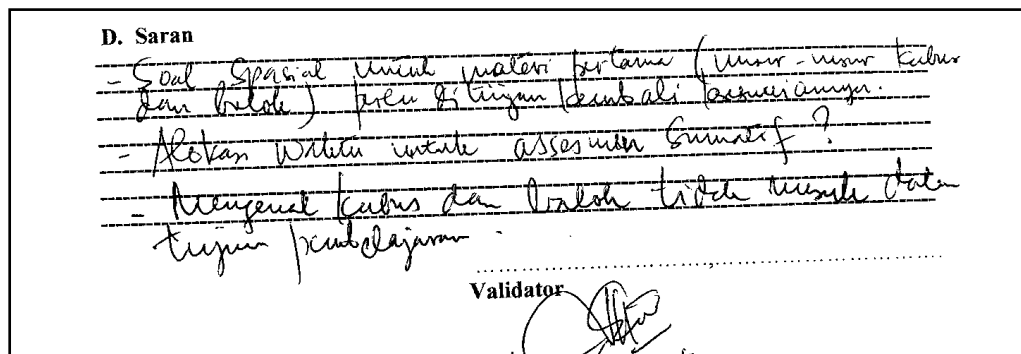 D. Saran
- Soal Spasial untuk materi pertama (unsur-unsur kubus
dan balok) perlu ditinjau kembali kesesuaiannya.
- Alokasi waktu untuk assesmen Sumatif ?
- Mengenal kubus dan balok tidak masuk dalam
tujuan pembelajaran.
……………………………,………………………………
Validator